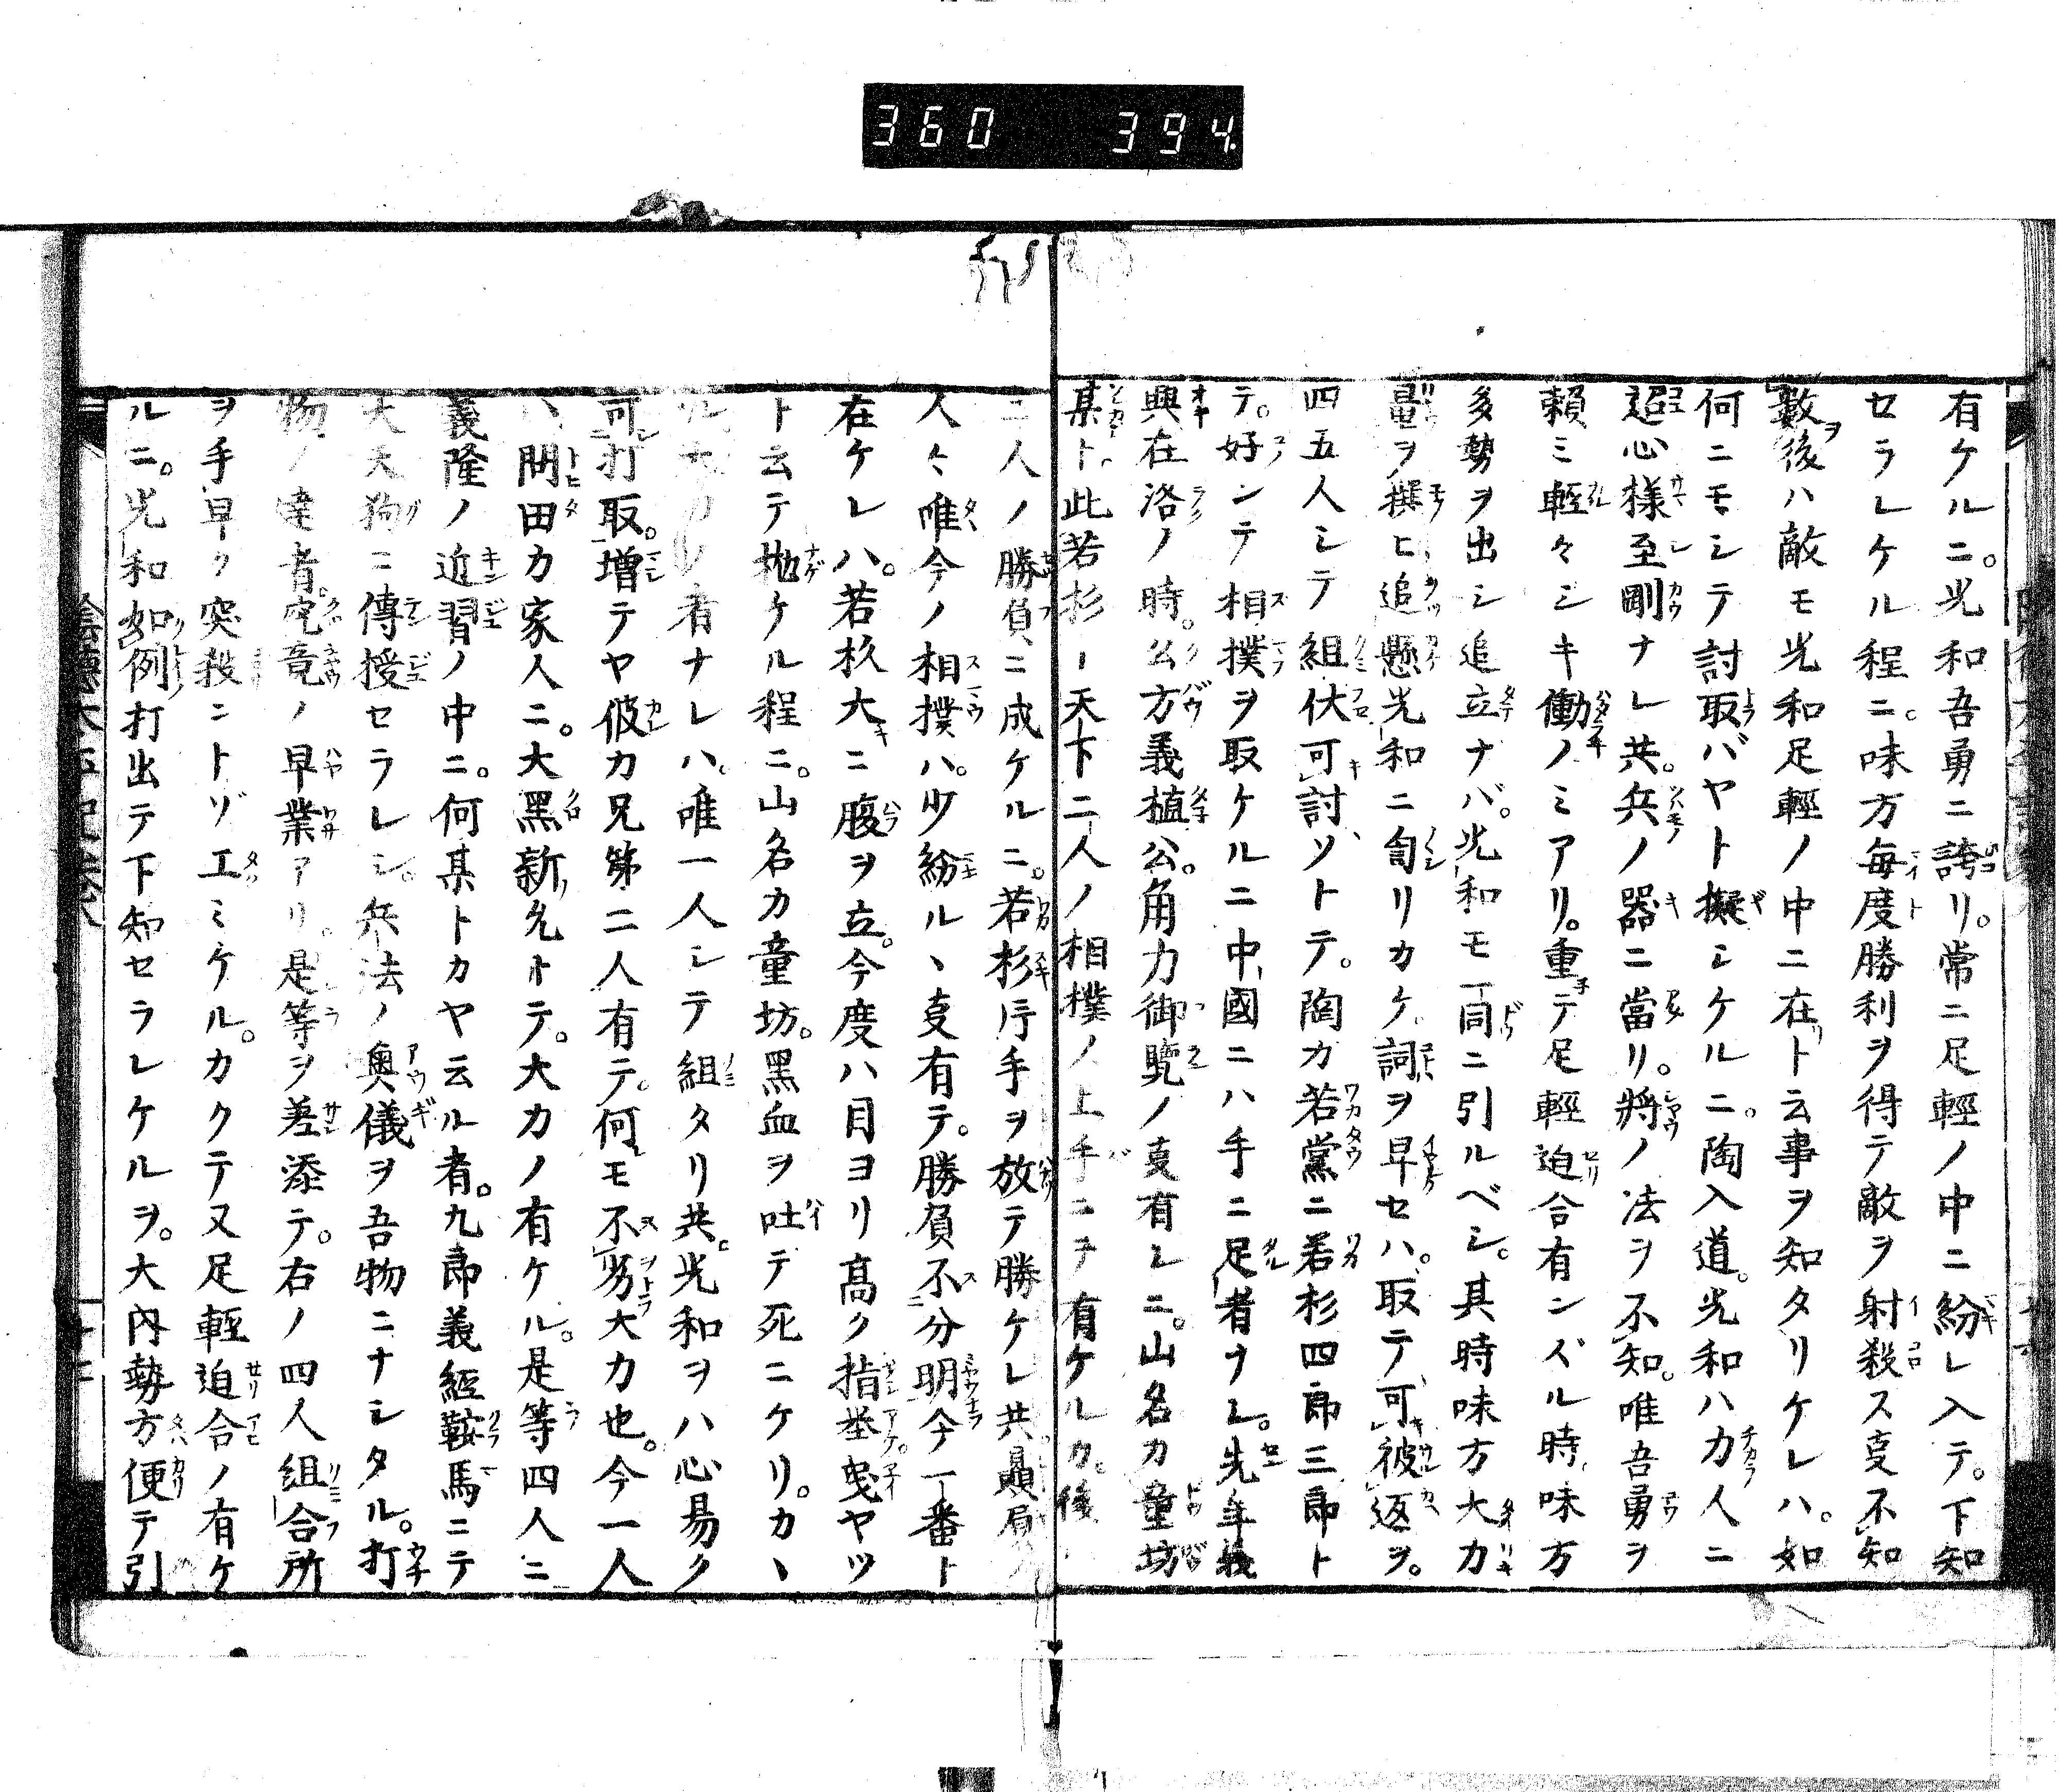 360 394
有ケルニ。光和吾勇ニ誇リ。常ニ足輕ノ中ニ紛レ入テ。下知
セラレケル程ニ。味方毎度勝利ヲ得テ敵ヲ射殺ス事不知
數後ハ敵モ光和足輕ノ中ニ在ト云事ヲ知タリケレハ。如
何ニモシテ討取バヤト擬シケルニ。陶入道。光和ハ力人ニ
超心様至剛ナレ共。兵ノ器ニ當リ。將ノ法ヲ不知。唯吾勇ヲ
頼ミ輕々シキ働ノミアリ。重テ足輕迫合有ンズル時味方
多勢ヲ出シ追立ナバ。光和モ一同ニ引ルベシ。其時味方大力
量ヲ撰ヒ追懸光和ニ匐リカケ。詞ヲ早セハ。取テ可彼返ヲ。
四五人シテ組伏可討ソトテ。陶カ若黨ニ若杉四郎三郎ト
テ。好ンテ相撲ヲ取ケルニ中國ニハ手ニ足者ナシ。先年義
興在洛ノ時。公方義植公。角力御覽ノ事有シニ。山名カ童坊
某ト此若杉ー天下二人ノ相撲ノ上手ニテ有ケルカ。後
二人ノ勝負ニ成ケルニ。若杉片手ヲ放テ勝ケレ共贔屓
人々唯今ノ相撲ハ。少紛ルヽ事有テ。勝負不分明今一番ト
在ケレハ。若杉大ニ腹ヲ立。今度ハ目ヨリ高ク指挙曳ヤツ
ト云テ抛ケル程ニ。山名カ童坊。黒血ヲ吐テ死ニケリ。カヽ
ル大力ノ者ナレハ。唯一人シテ組タリ共。光和ヲハ心易ク
可打取。増テヤ彼カ兄弟二人有テ。何モ不劣大力也。今一人
ハ問田カ家人ニ。大黒新允トテ。大力ノ有ケル。是等四人ニ
義隆ノ近習ノ中ニ。何某トカヤ云ル者。九郎義經鞍馬ニテ
大天狗ニ傳授セラレシ。兵法ノ奥儀ヲ吾物ニナシタル。打
物ノ達者。究竟ノ早業アリ。是等ヲ差添テ。右ノ四人組合所
ヲ手早ク突殺ニトゾエミケル。カクテ又足輕迫合ノ有ケ
ルニ。光和如例打出テ下知セラレケルヲ。大内勢方便テ引
陰德太平記卷八